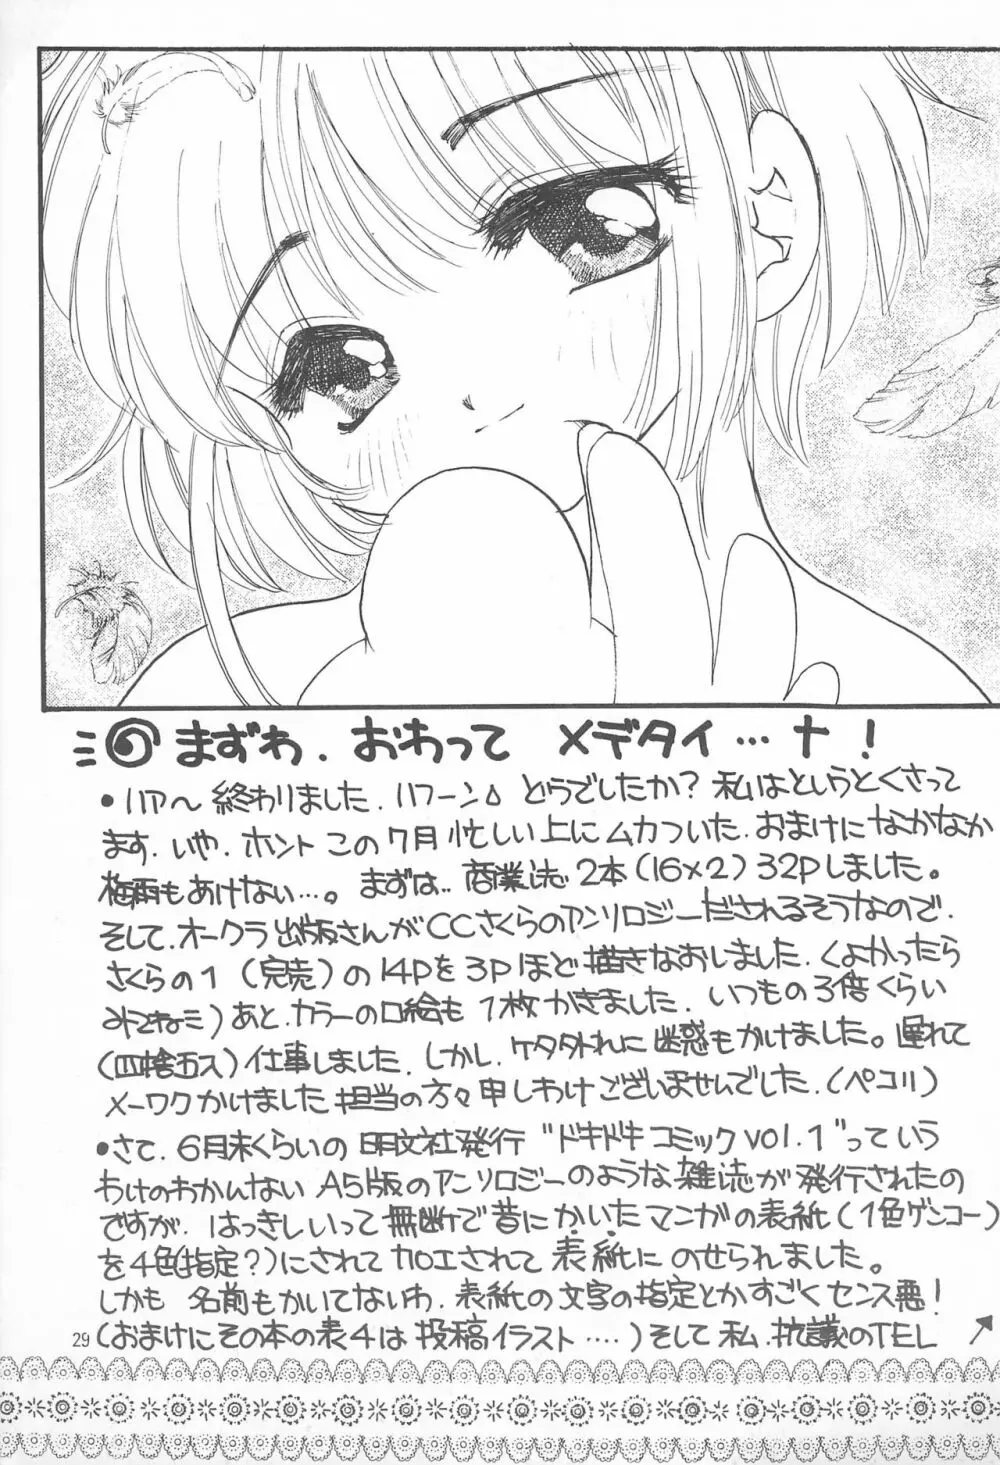 まずわ.おわって メデタイ…ナ!
・ハア〜 終わりました.ハフーン どうでしたか?私はというとくさって
ます.いや.ホント この7月忙しい上にムカついた.おまけに なかなか
梅雨もあけない…。まずは..商業誌2本(16×2)32Pしました。
そして.オークラ出版さんがCCさくらのアンソロジーだされるそうなので.
さくらの1(完売)の14Pを3Pほど描きなおしました.(よかったら
みてねミ)あと.カラーの口絵も1枚かきました.いつもの3倍くらい
(四捨五入)仕事しました.しかし.ケタ外れに迷惑もかけました。遅れて
メーワクかけました担当の方々申しわけございませんでした.(ペコリ)
・さて.6月末くらいの明文社発行"ドキドキコミックvol.1"っていう
わけのわかんない A5版のアンソロジーのような雑誌が発行されたの
ですが.はっきしいって無断で昔にかいたマンガの表紙(1色ゲンコー)
を4色(指定?)にされて加工されて表紙にのせられました。
しかも 名前もかいてないわ.表紙の文字の指定とかすごくセンス悪!
(おまけにその本の表4は投稿イラスト….)そして私.抗議のTEL
29